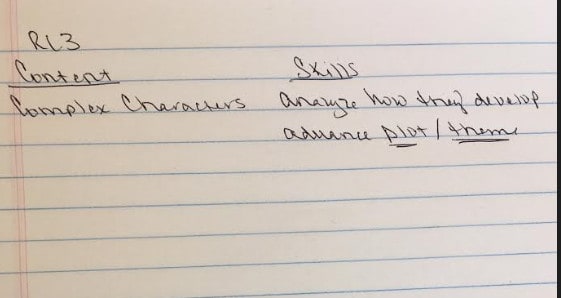 RL3
Content Skills
Complex Characters analyze how they develop
advance plot / theme